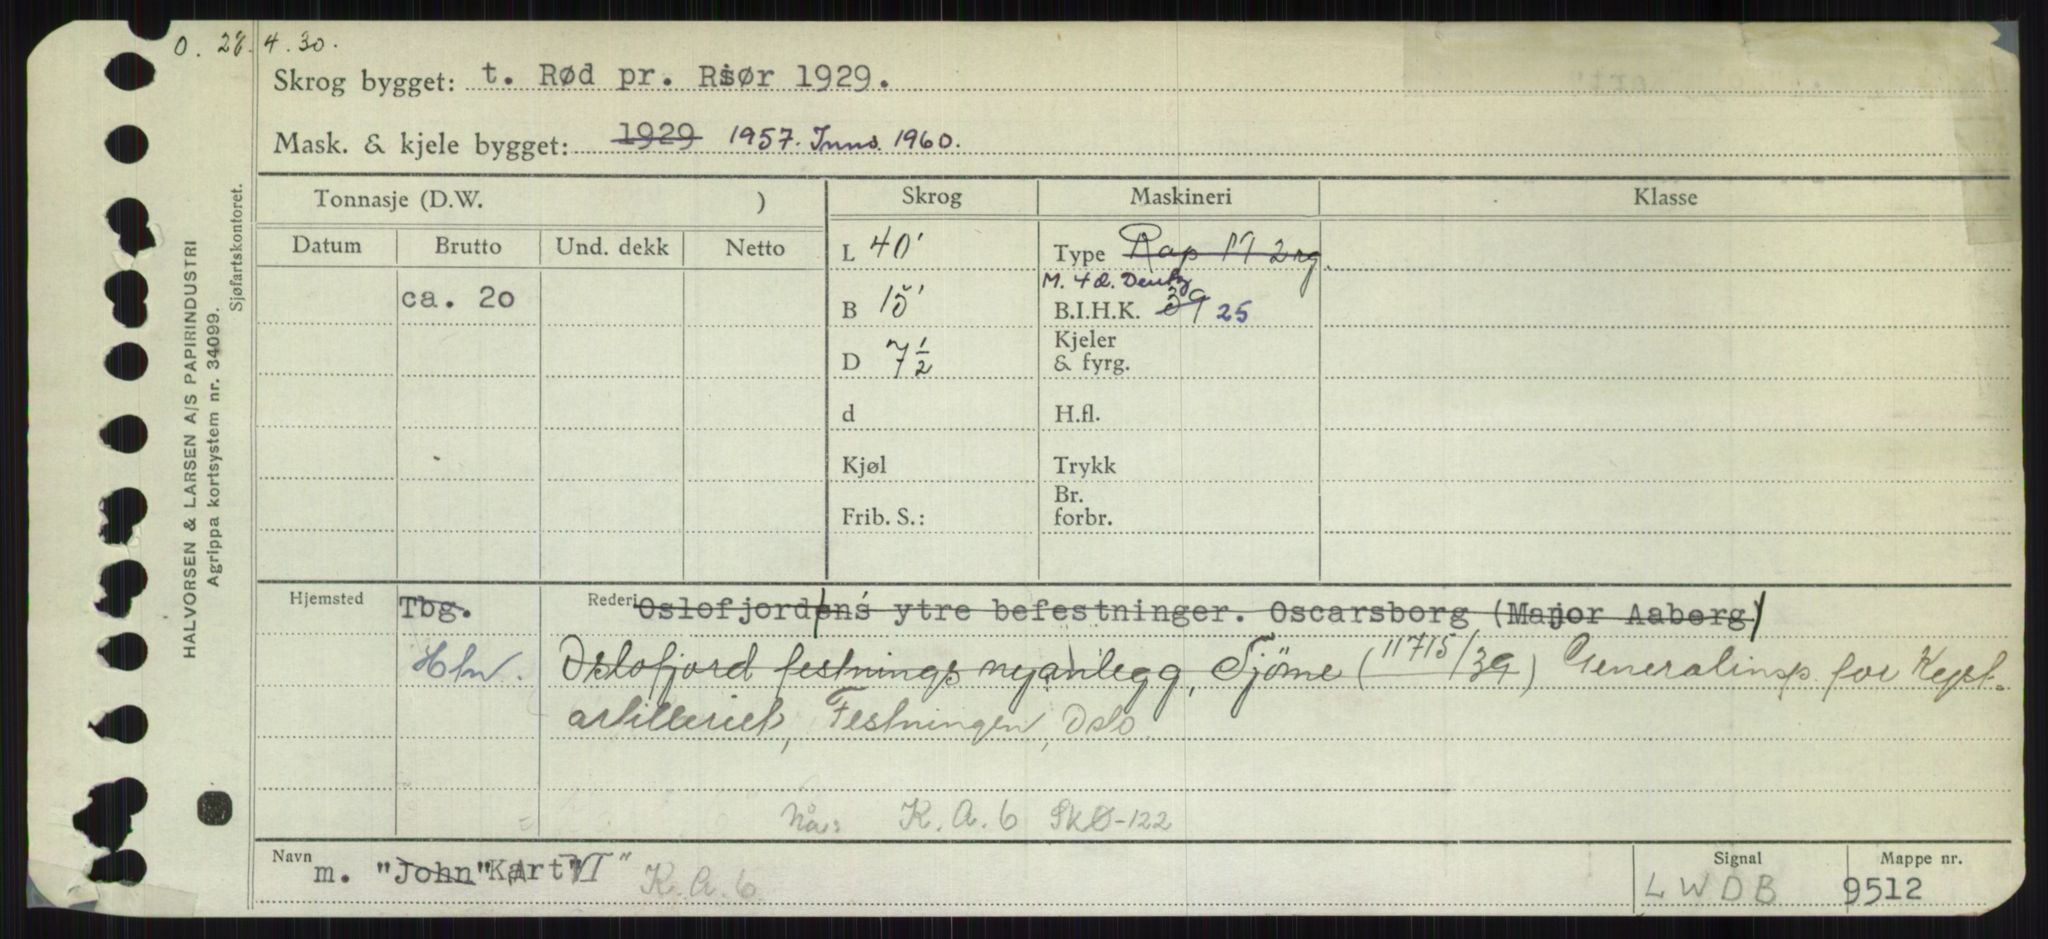 O. 28.4.30.
Skrog bygget: t. Rød pr. Risør 1929.
Mask. & kjele bygget: 1929 1957. Inns. 1960.
Tonnasje (D.W. )
Skrog
Maskineri
Klasse
Datum
Brutto
Und. dekk
Netto
L 40'
Type Rap M 2
M. 4 d. Deutz
ca. 20
B 15'
B.I.H.K. 39 25
D 7½'
Kjeler
& fyrg.
d
H.fl.
Kjøl
Trykk
Frib. S.:
Br.
forbr.
Hjemsted
Tbg.
Rederi Oslofjordens ytre befestninger. Oscarsborg (Major Aaberg)
Htn. Oslofjord festnings nyanlegg, Tjöme (11715/39) Generalinsp. for Kyst-
artilleriet, Festningen, Oslo.
Nå: K.A.6 SKØ-122
Navn m. "John" "Kart VI" K.A.6
Signal
LWDB
Mappe nr.
9512
HALVORSEN & LARSEN A/S PAPIRINDUSTRI
Agrippa kortsystem nr. 34099.
Sjøfartskontoret.